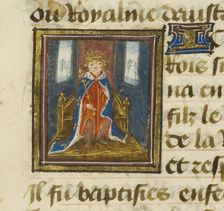 ou Royalme daust
rois si
na en
filz le
de la
et resp
Il fu baptisies enfe